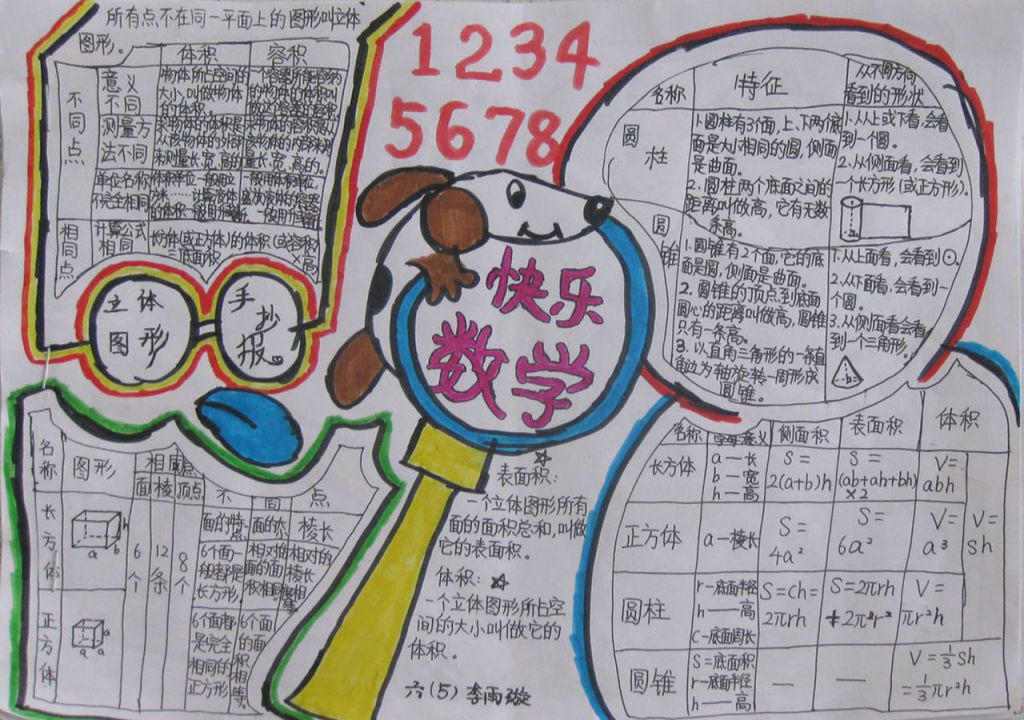 所有点不在同一平面上的图形叫立体
图形。
体积 容积
不同点
意义
不同
测量方
法不同
单位名称
不完全相同
相同点
计算公式
相同
长方体(或正方体)的体积(或容积)
=底面积×高
立体
图形
手抄报。
1234
5678
快乐
数学
名称 特征 从不同方向
看到的形状
圆柱
1.圆柱有3个面,上、下两个底
面是大小相同的圆,侧面
是曲面。
2.圆柱两个底面之间的
距离叫做高,它有无数
条高。
1.从上或下看,会看
到一个圆。
2.从侧面看,会看到
一个长方形(或正方形)。
圆锥
1.圆锥有2个面,它的底
面是圆,侧面是曲面。
2.圆锥的顶点到底面
圆心的距离叫做高,圆锥
只有一条高。
3.以直角三角形的一条直
角边为轴旋转一周形成
圆锥。
1.从上面看,会看到⊙。
2.从下面看,会看到一
个圆。
3.从侧面看会看
到一个三角形。
名称 图形 相同点
面 棱 顶点
不同点
面的特点 面的大小 棱长
长方体
a b h
6个 12条 8个
6个面一
般都是
长方形,
相对的
面的面
积相同
相对的
棱长
正方体
a a a
6个面都
是完全
相同的
正方形
6个面
的面
积相等
表面积:☆
一个立体图形所有
面的面积总和,叫做
它的表面积。
体积:☆
一个立体图形所占空
间的大小叫做它的
体积。
六(5) 李雨璇
名称 字母意义 侧面积 表面积 体积
长方体
a—长
b—宽
h—高
S=
2(a+b)h
S=
(ab+ah+bh)
×2
V=
abh
正方体
a—棱长
S=
4a²
S=
6a²
V=
a³
V=
Sh
圆柱
r—底面半径
h—高
C—底面周长
S=ch=
2πrh
S=2πrh
+2πr²
V=
πr²h
圆锥
S=底面积
r—底面半径
h—高
—
—
V=⅓Sh
=⅓πr²h